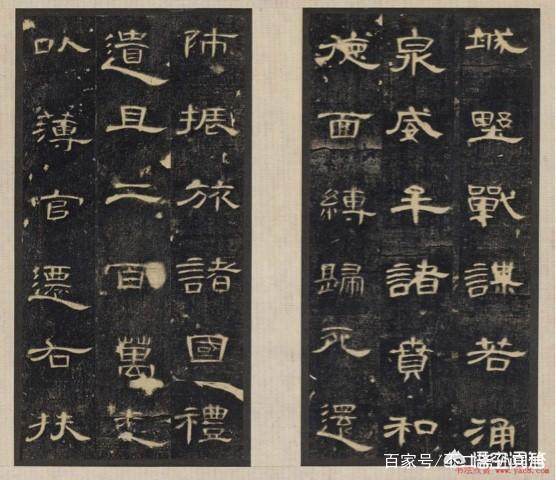 城墅戰謀若涌
泉威牟諸賁和
德面縛歸死還
師振旅諸國禮
遺且二百萬悉
以薄官遷右扶
百家号/
书法欣赏 www.yac8.com